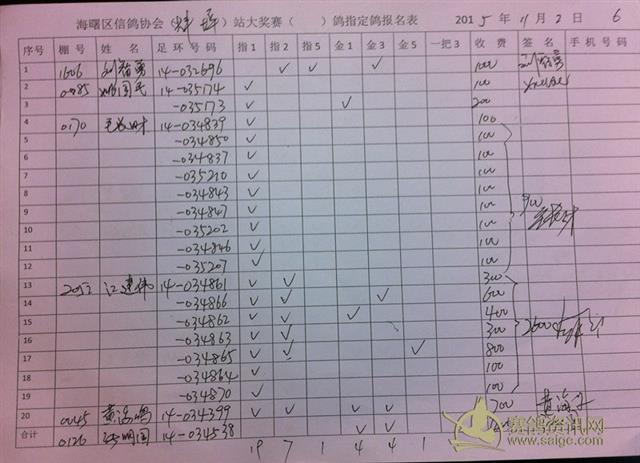 海曙区信鸽协会（ ）站大奖赛（ ）鸽指定鸽报名表 2015年11月2日 6
序号 棚号 姓名 足环号码 指1 指2 指5 金1 金3 金5 一把3 收费 签名 手机号码
1 1606 刘智勇 14-032696 ✓ ✓ ✓ 1000 刘智勇
2 0985 姚国民 14-035174 ✓ 100
3 -035173 ✓ ✓ 200
4 0170 14-034839 ✓ 100
5 -034850 ✓ 100
6 -034837 ✓ 100
7 -035210 ✓ 100
8 -034843 ✓ 100
9 -034847 ✓ 100 900
10 -035202 ✓ 100
11 -034846 ✓ 100
12 -035207 ✓ 100
13 江建伟 14-034861 ✓ ✓ 300
14 -034866 ✓ ✓ ✓ 600
15 -034862 ✓ ✓ ✓ 400
16 -034863 ✓ ✓ 300 2600
17 -034865 ✓ ✓ ✓ 800
18 -034864 ✓ 100
19 -034870 ✓ 100
20 0045 黄海鸣 14-034399 ✓ ✓ ✓ ✓ 700
合计 0126 14-034538 ✓ ✓
19 7 1 4 4 1
赛鸽资讯网
www.saige.com